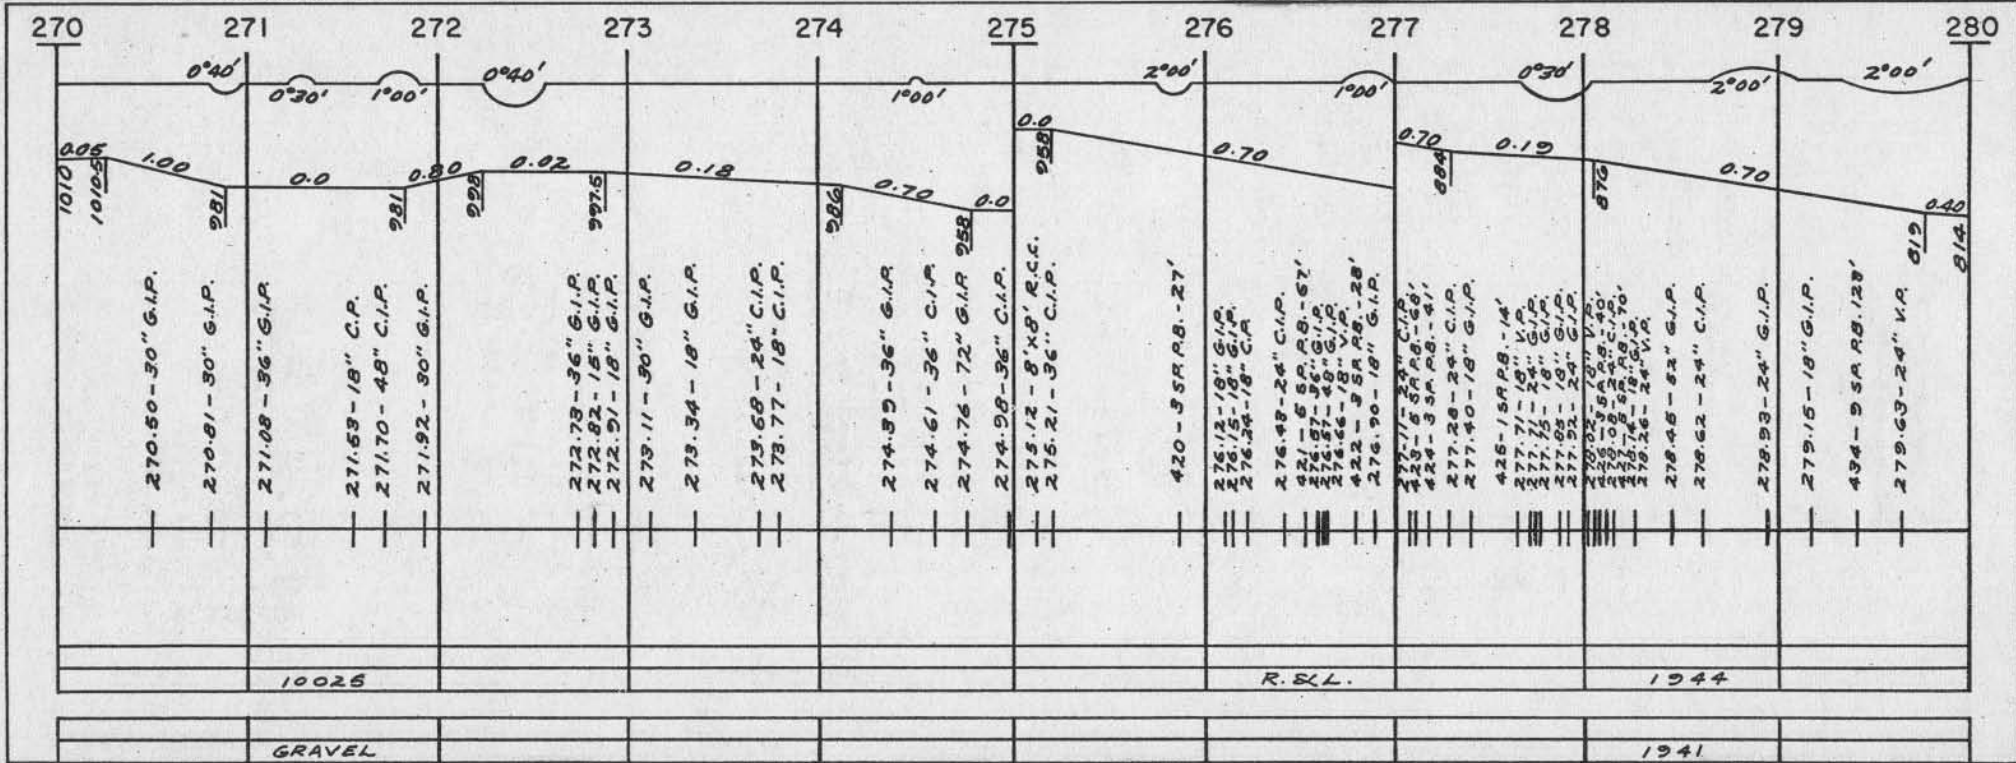 270 271 272 273 274 275 276 277 278 279 280
0°40' 0°30' 1°00' 0°40' 1°00' 2°00' 1°00' 0°30' 2°00' 2°00'
0.05 1.00 0.0 0.80 0.02 0.18 0.70 0.0 0.0 0.70 0.70 0.19 0.70 0.40
1010 1010.5 981 981 998 997.5 986 958 958 884 876 819 814
270.50-30" G.I.P.
270.81-30" G.I.P.
271.08-36" G.I.P.
271.53-18" C.P.
271.70-48" C.I.P.
271.92-30" G.I.P.
272.73-36" G.I.P.
272.82-18" G.I.P.
272.91-18" G.I.P.
273.11-30" G.I.P.
273.34-18" G.I.P.
273.68-24" C.I.P.
273.77-18" C.I.P.
274.39-36" G.I.P.
274.61-36" C.I.P.
274.76-72" G.I.P.
274.98-36" C.I.P.
275.12-8'x8' R.C.C.
275.21-36" C.I.P.
420-3 SP. P.B.-27'
276.12-18" G.I.P.
276.15-18" G.I.P.
276.24-18" C.P.
276.43-24" C.I.P.
421-5 S.P. P.B.-67'
276.57-36" G.I.P.
276.57-48" G.I.P.
276.66-18" V.P.
422-3 SP. P.B.-28'
276.90-18" G.I.P.
277.11-24" C.I.P.
423-5 SP. P.B.-68'
424-3 SP. P.B.-41'
277.28-24" C.I.P.
277.40-18" G.I.P.
425-1 SP. P.B.-14'
277.71-18" V.P.
277.71-24" G.I.P.
277.75-18" G.I.P.
277.85-18" G.I.P.
277.92-24" G.I.P.
278.02-18" V.P.
426-3 SP. P.B.-40'
278.08-24" C.I.P.
SP. P.B.-70'
278.14-18" G.I.P.
278.26-24" V.P.
278.45-52" G.I.P.
278.62-24" C.I.P.
278.93-24" G.I.P.
279.15-18" G.I.P.
434-9 SP. P.B. 128'
279.63-24" V.P.
10025 R.&L.L. 1944
GRAVEL 1941